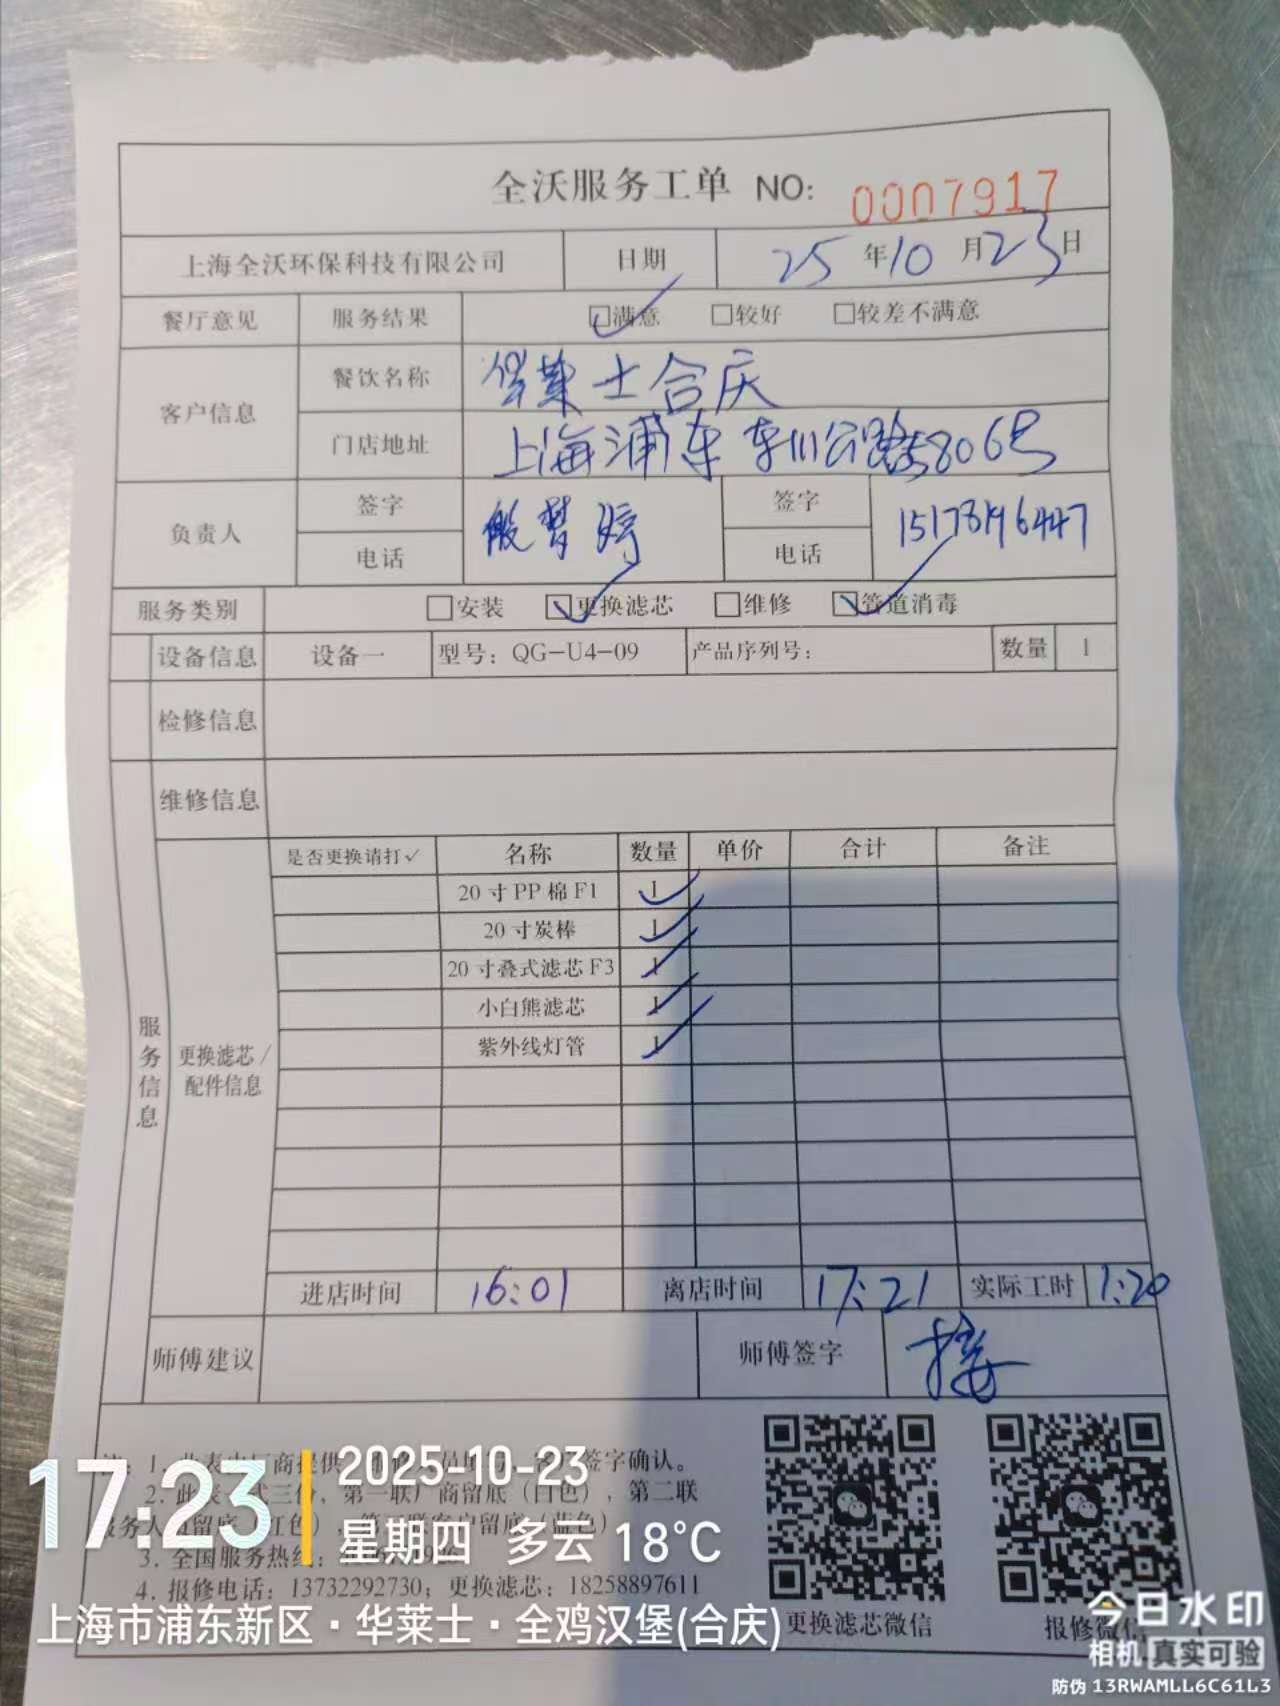 全沃服务工单 NO: 0007917
上海全沃环保科技有限公司 日期 25年10月23日
餐厅意见 服务结果 ☑满意 □较好 □较差不满意
客户信息 餐饮名称 华莱士合庆
门店地址 上海浦东 川公路5806号
负责人 签字 签字
电话 电话
服务类别 □安装 ☑更换滤芯 □维修 ☑管道消毒
设备信息 设备一 型号：QG-U4-09 产品序列号： 数量 1
检修信息
维修信息
是否更换请打✓ 名称 数量 单价 合计 备注
20寸PP棉F1 1 ✓
20寸炭棒 1 ✓
20寸叠式滤芯F3 1 ✓
小白熊滤芯 1 ✓
紫外线灯管 1 ✓
服务信息
更换滤芯/
配件信息
进店时间 16:01 离店时间 17:21 实际工时 1:20
师傅建议 师傅签字
签字确认。
2. 此 式三份，第一联厂商留底（白色），第二联
留底（红色），
3. 全国服务热线：
4. 报修电话：13732292730；更换滤芯：18258897611
更换滤芯微信
报修微信
17:23
2025-10-23
星期四 多云 18℃
上海市浦东新区·华莱士·全鸡汉堡(合庆)
今日水印
相机 真实可验
防伪 13RWAMLL6C61L3